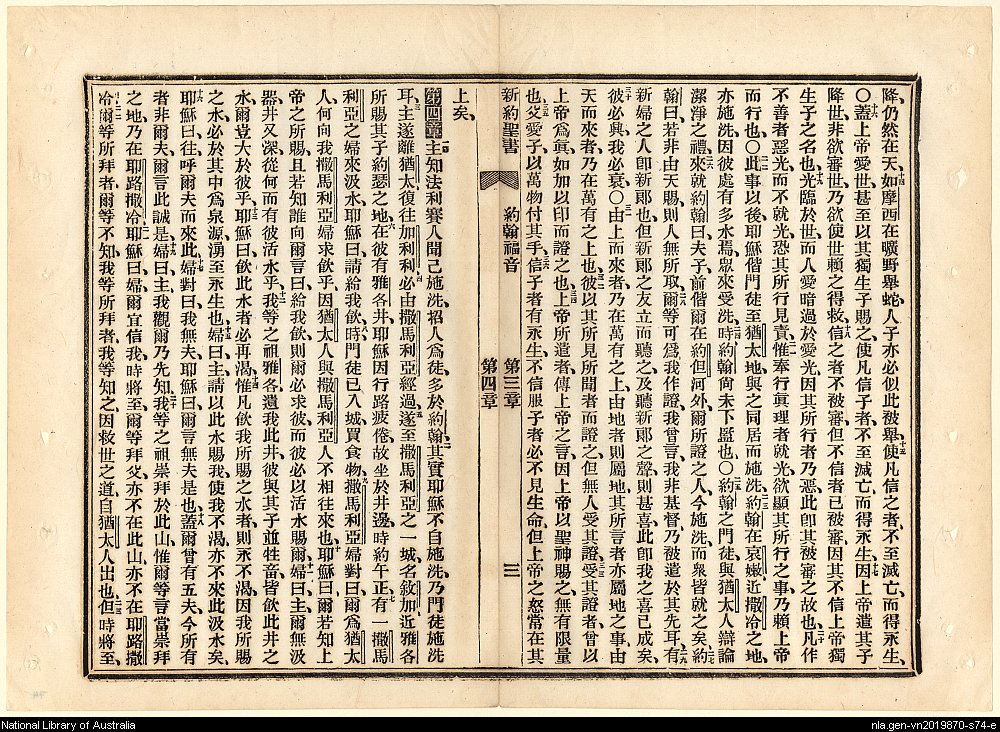 降、仍然在天、如摩西在曠野舉蛇、人子亦必似此被舉、使凡信之者、不至滅亡、而得永生、
○蓋上帝愛世、甚至以其獨生子賜之、使凡信子者、不至滅亡、而得永生、因上帝遣其子
降世、非欲審世、乃欲使世賴之得救、信之者不被審、但不信者已被審、因其不信上帝獨
生子之名也、光臨於世、而人愛暗過於愛光、因其所行者乃惡、此卽其被審之故也、凡作
不善者惡光、而不就光、恐其所行見責、惟奉行眞理者就光、欲顯其所行之事、乃賴上帝
而行也、○此事以後、耶穌偕門徒至猶太地、與之同居而施洗、約翰在哀嫩近撒冷之地、
亦施洗、因彼處有多水焉、衆來受洗、時約翰尙未下監也、○約翰之門徒與猶太人辯論
潔淨之禮、來就約翰曰、夫子、前偕爾在約但河外、爾所證之人、今施洗、而衆皆就之矣、約
翰曰、若非由天賜、則人無所取、爾等可爲我作證、我曾言、我非基督、乃被遣於其先耳、有
新婦之人卽新郞也、但新郞之友、立而聽之、及聽新郞之聲、則甚喜、此卽我之喜已成矣、
彼必興、我必衰、○由上而來者、乃在萬有之上、由地者則屬地、其所言者亦屬地之事、由
天而來者、乃在萬有之上也、彼以其所見所聞者而證之、但無人受其證、受其證者、曾以
上帝爲眞、如加以印而證之也、上帝所遣者、傳上帝之言、因上帝以聖神賜之、無有限量
也、父愛子、以萬物付其手、信子者有永生、不信服子者、必不見生命、但上帝之怒常在其
新約聖書 約翰福音 第三章 第四章 三
上矣、
第四章 主知法利賽人聞己施洗、招人爲徒、多於約翰、其實耶穌不自施洗、乃門徒施洗
耳、主遂離猶太、復往加利利、必由撒馬利亞經過、遂至撒馬利亞之一城、名敘加、近雅各
所賜其子約瑟之地、在彼有雅各井、耶穌因行路疲倦、故坐於井邊、時約午正、有一撒馬
利亞之婦來汲水、耶穌曰、請給我飲、時門徒已入城買食物、撒馬利亞婦對曰、爾爲猶太
人、何向我撒馬利亞婦求飲乎、因猶太人與撒馬利亞人不相往來也、耶穌曰、爾若知上
帝之所賜、且若知誰向爾言曰、給我飲、則爾必求彼、而彼必以活水賜爾、婦曰、主、爾無汲
器、井又深、從何而有彼活水乎、我等之祖雅各遺我此井、彼與其子並牲畜皆飲此井之
水、爾豈大於彼乎、耶穌曰、飲此水者必再渴、惟凡飲我所賜之水者、則永不渴、因我所賜
之水、必於其中爲泉源、湧至永生也、婦曰、主、請以此水賜我、使我不渴、亦不來此汲水矣、
耶穌曰、往呼爾夫而來此、婦對曰、我無夫、耶穌曰、爾言無夫是也、蓋爾曾有五夫、今所有
者非爾夫、爾言此誠是、婦曰、主、我觀爾乃先知、我等之祖崇拜於此山、惟爾等言當崇拜
之地、乃在耶路撒冷、耶穌曰、婦、爾宜信我、時將至、爾等拜父、亦不在此山、亦不在耶路撒
冷、爾等所拜者、爾等不知、我等所拜者、我等知之、因救世之道、自猶太人出也、但時將至、
National Library of Australia
nla.gen-vn2019870-s74-e